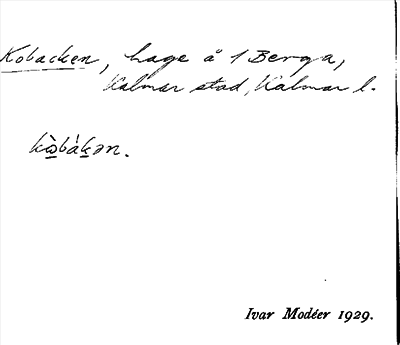 Kobacken, hage å 1 Berga,
Kalmar stad, Kalmar l.
kὼbàkən.
Ivar Modéer 1929.